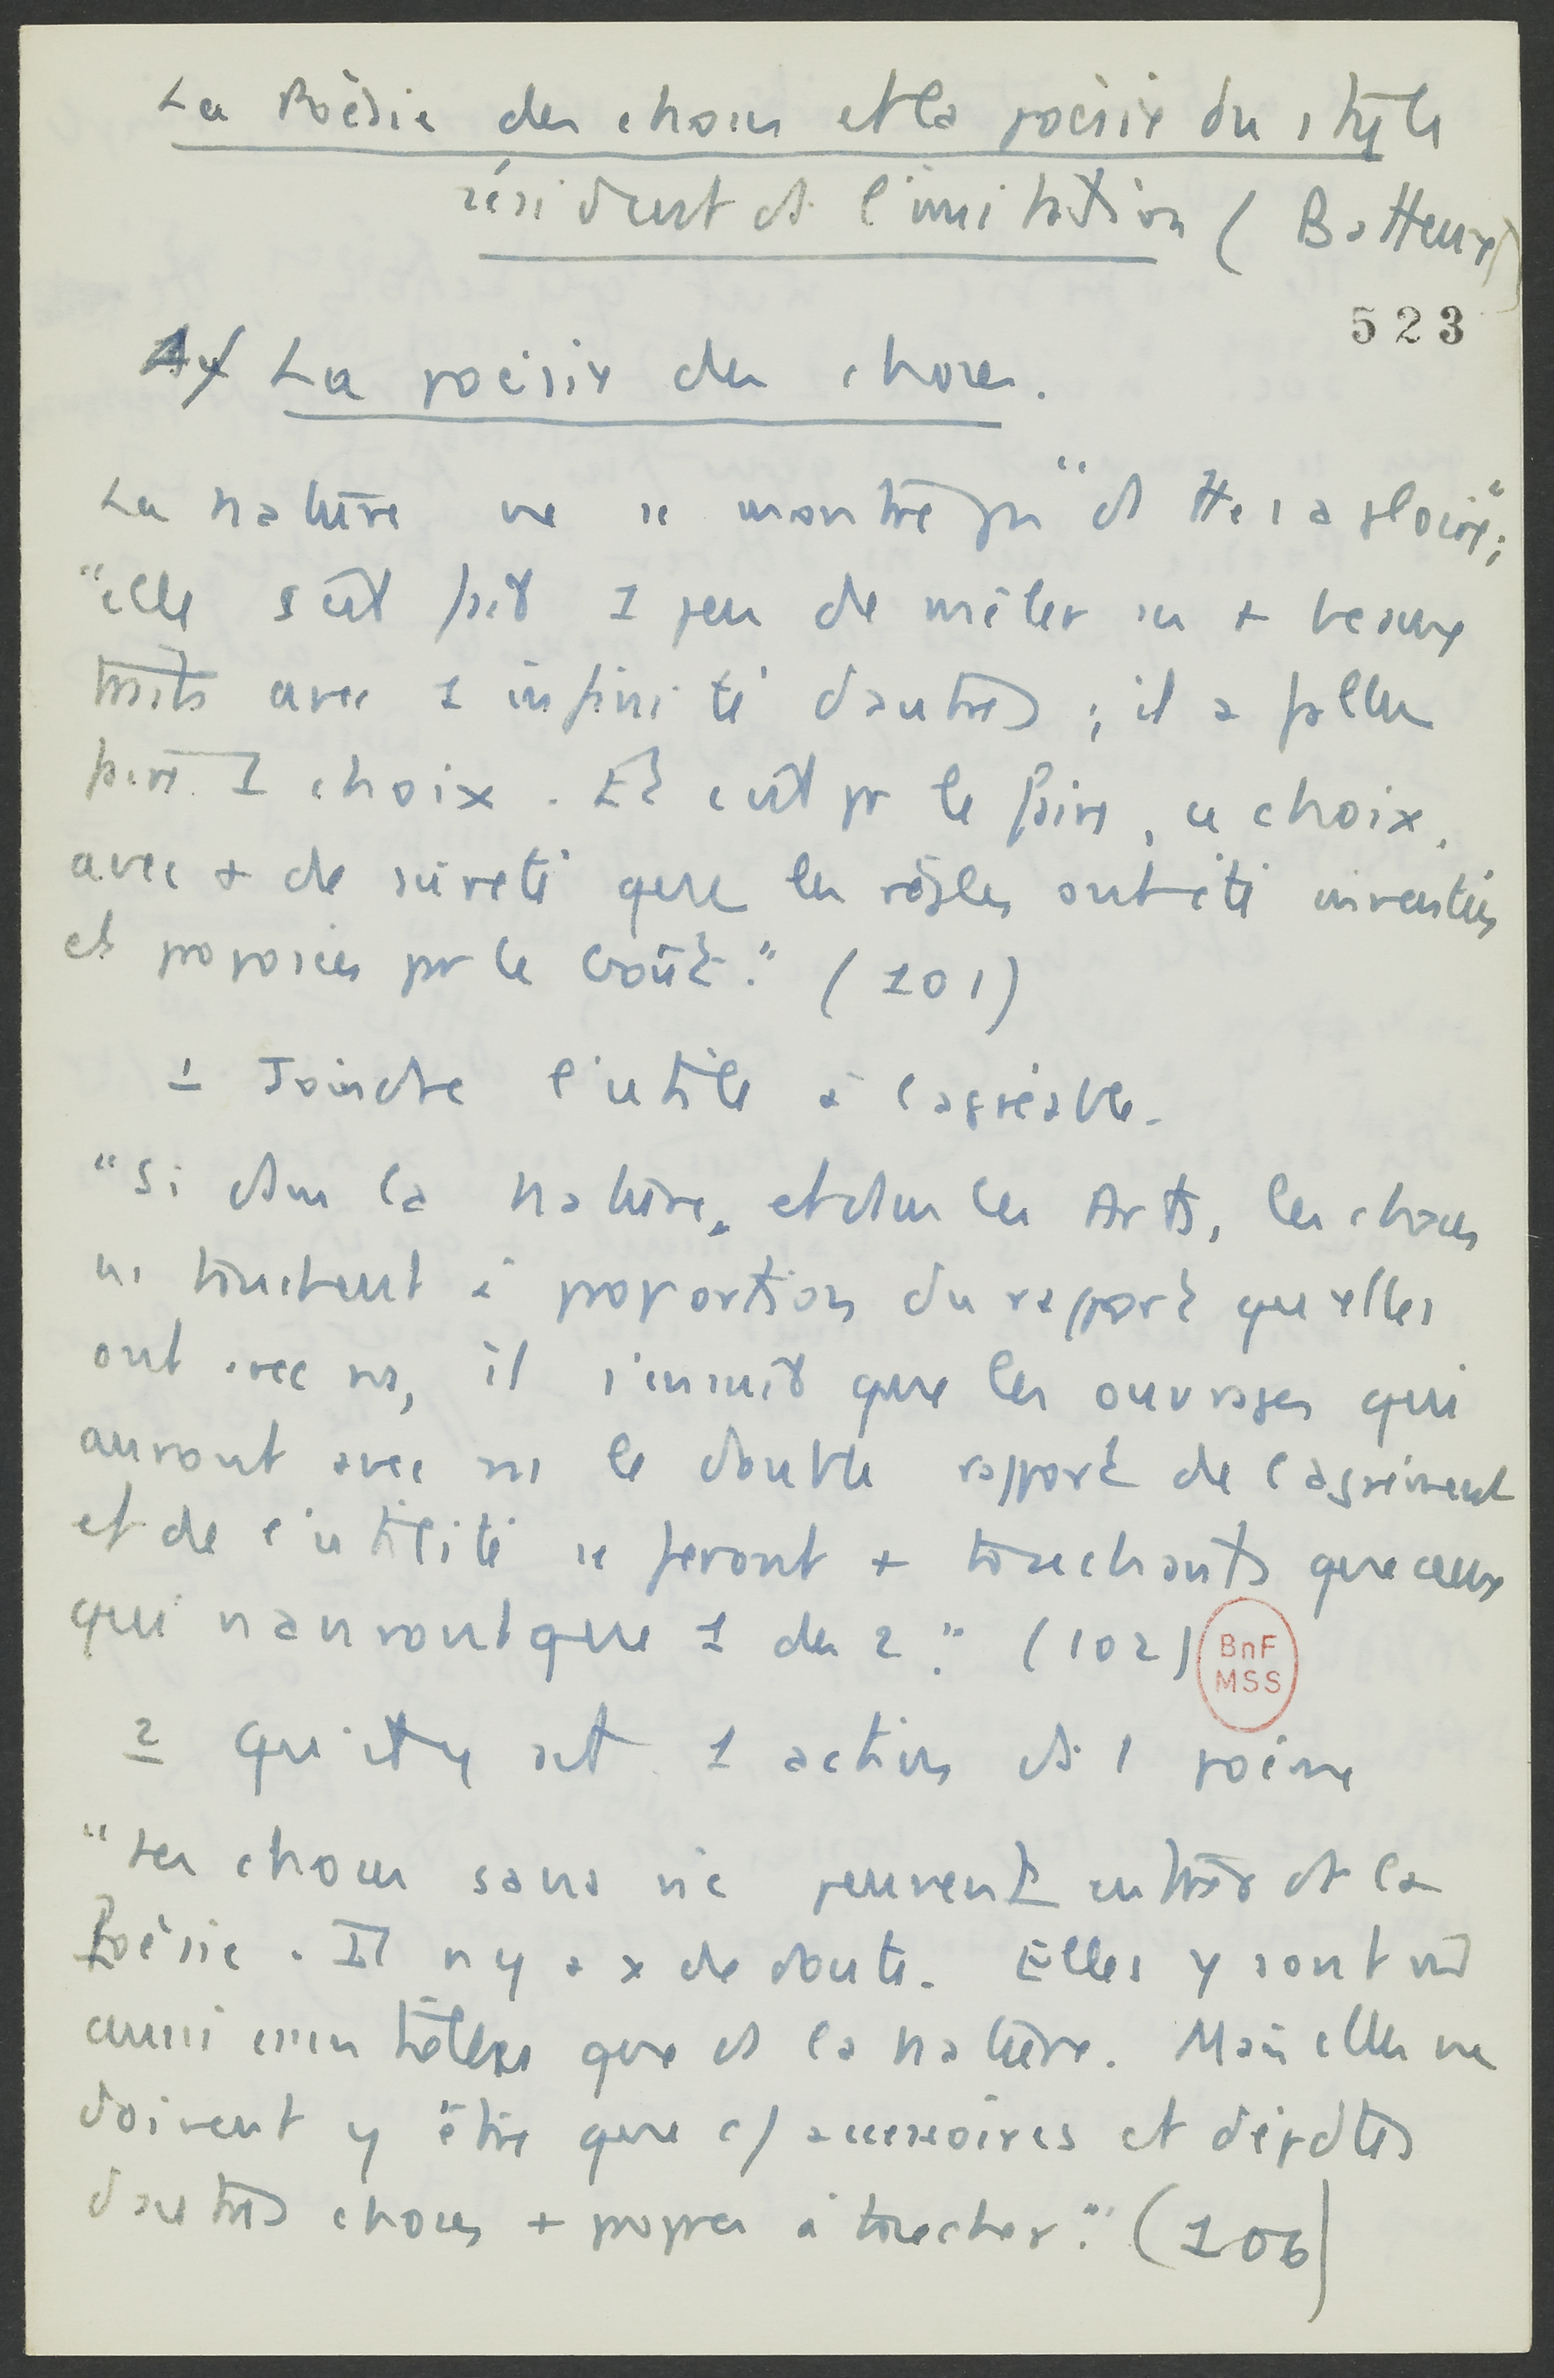 La Poésie des choses et la poésie du style
résident ds l'imitation (Batteux)
523
A/ La poésie des choses.
La nature ne se montre qu "ds tte sa gloire";
"elle s'est fait 1 jeu de mêler ses + beaux
traits avec 1 infinité d'autres ; il a fallu
faire 1 choix. Et c'est pr le faire, ce choix,
avec + de sûreté que les règles ont été inventées
et proposées pr le Goût." (101)
1 Joindre l'utile à l'agréable.
"Si dans la nature, et dans les Arts, les choses
ns touchent à proportion du rapport qu'elles
ont avec ns, il s'ensuit que les ouvrages qui
auront avec ns le double rapport de l'agrément
et de l'utilité se feront + touchants que ceux
qui n'auront que 1 des 2." (102)
BnF
MSS
2 Qu'il y ait 1 action ds 1 poème
"Les choses sans vie peuvent entrer ds la
Poésie. Il n'y a x de doute. Elles y sont
aussi essentielles que ds la nature. Mais elles ne
doivent y être que c/ accessoires et dépdtes
d'autres choses + propres à toucher." (106)